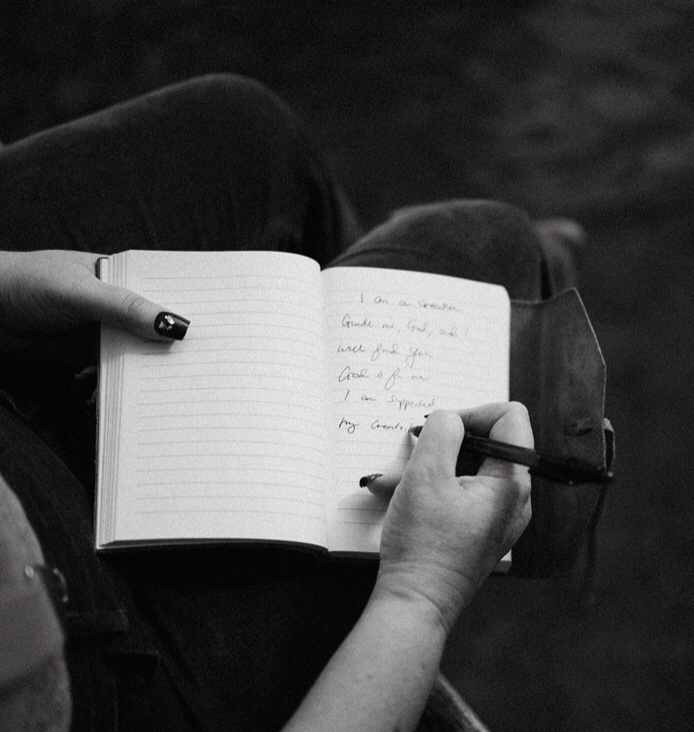 I am a creation
Guide me, God, and I
will find You
God is for me
I am supported
my